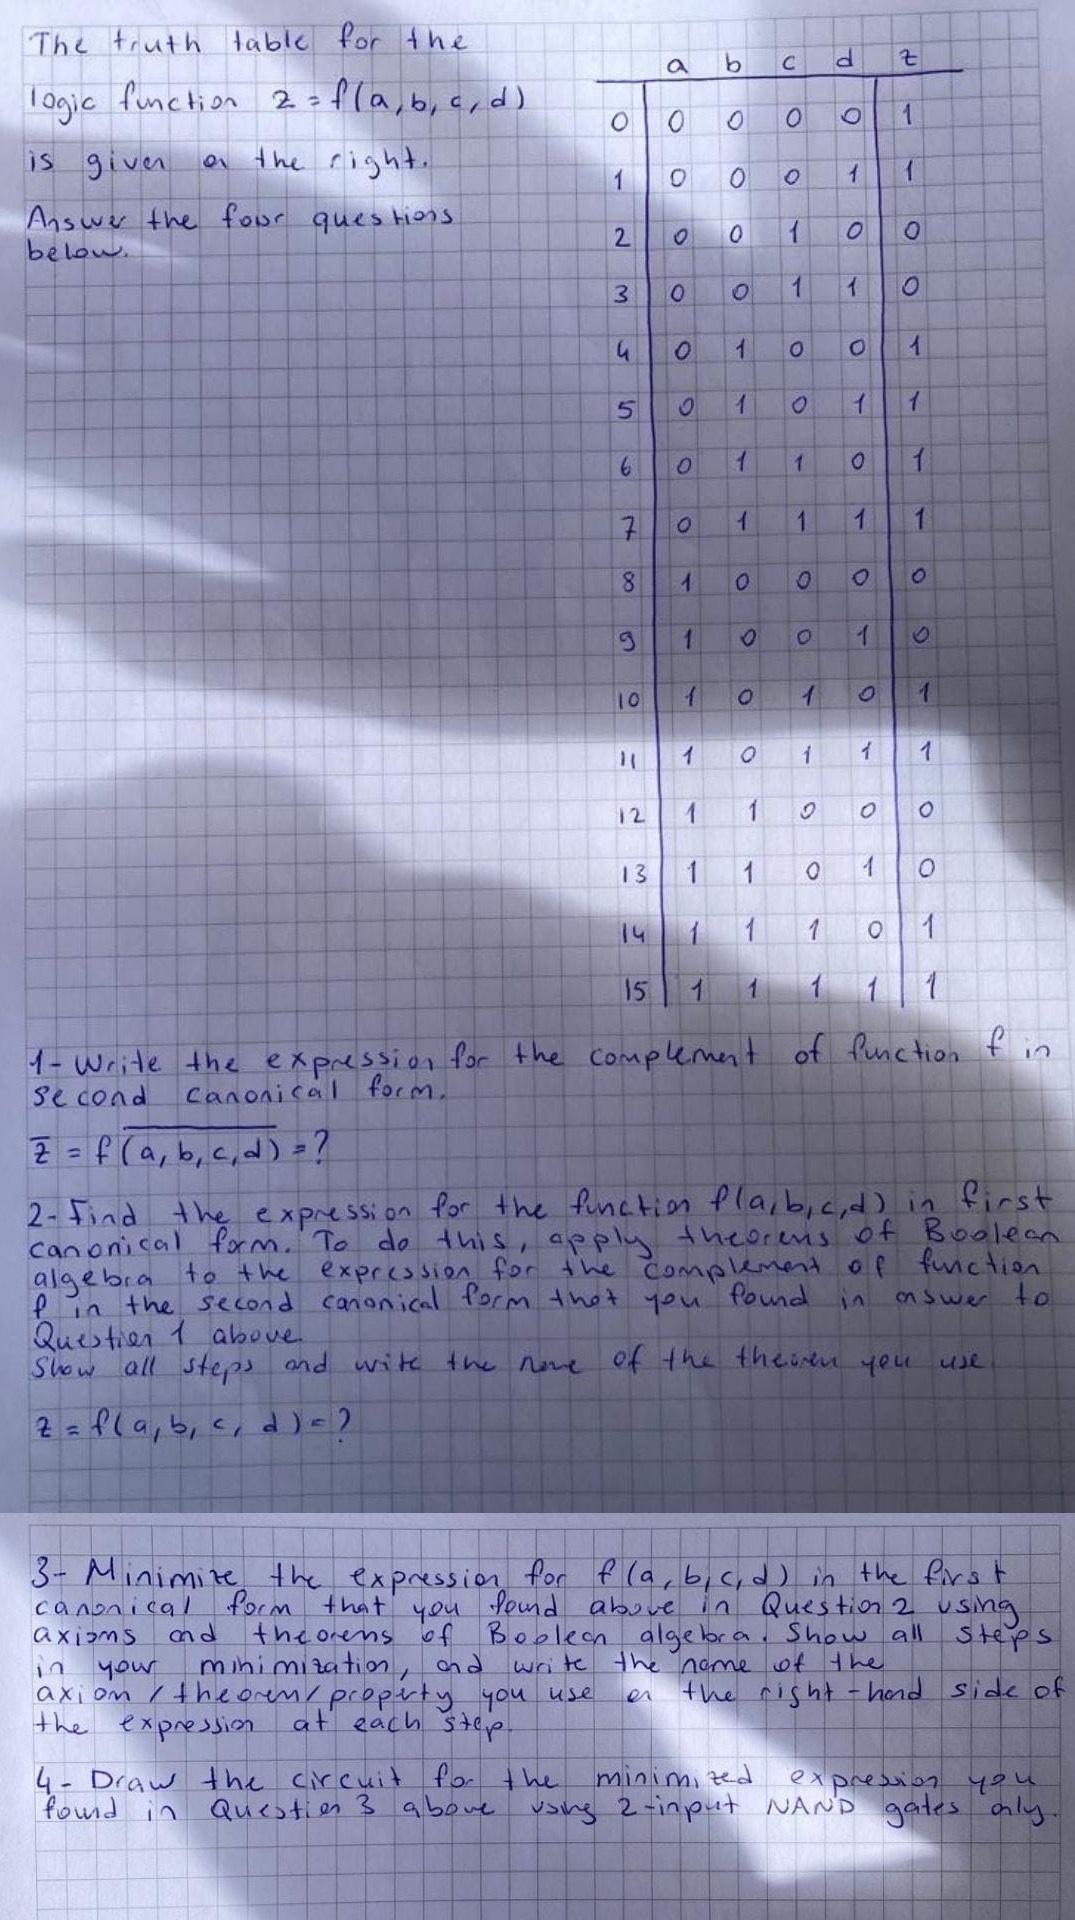 The truth table for the
logic function z = f(a, b, c, d)
is given on the right.
Answer the four questions
below.
a b c d z
0 0 0 0 0 1
1 0 0 0 1 1
2 0 0 1 0 0
3 0 0 1 1 0
4 0 1 0 0 1
5 0 1 0 1 1
6 0 1 1 0 1
7 0 1 1 1 1
8 1 0 0 0 0
9 1 0 0 1 0
10 1 0 1 0 1
11 1 0 1 1 1
12 1 1 0 0 0
13 1 1 0 1 0
14 1 1 1 0 1
15 1 1 1 1 1
1- Write the expression for the complement of function f in
second canonical form.
z̅ = f(a, b, c, d)̅ = ?
2- Find the expression for the function f(a,b,c,d) in first
canonical form. To do this, apply theorems of Boolean
algebra to the expression for the complement of function
f in the second canonical form that you found in answer to
Question 1 above.
Show all steps and write the name of the theorem you use.
z = f(a, b, c, d) = ?
3- Minimize the expression for f(a, b, c, d) in the first
canonical form that you found above in Question 2 using
axioms and theorems of Boolean algebra. Show all steps
in your minimization, and write the name of the
axiom / theorem / property you use on the right-hand side of
the expression at each step.
4- Draw the circuit for the minimized expression you
found in Question 3 above using 2-input NAND gates only.